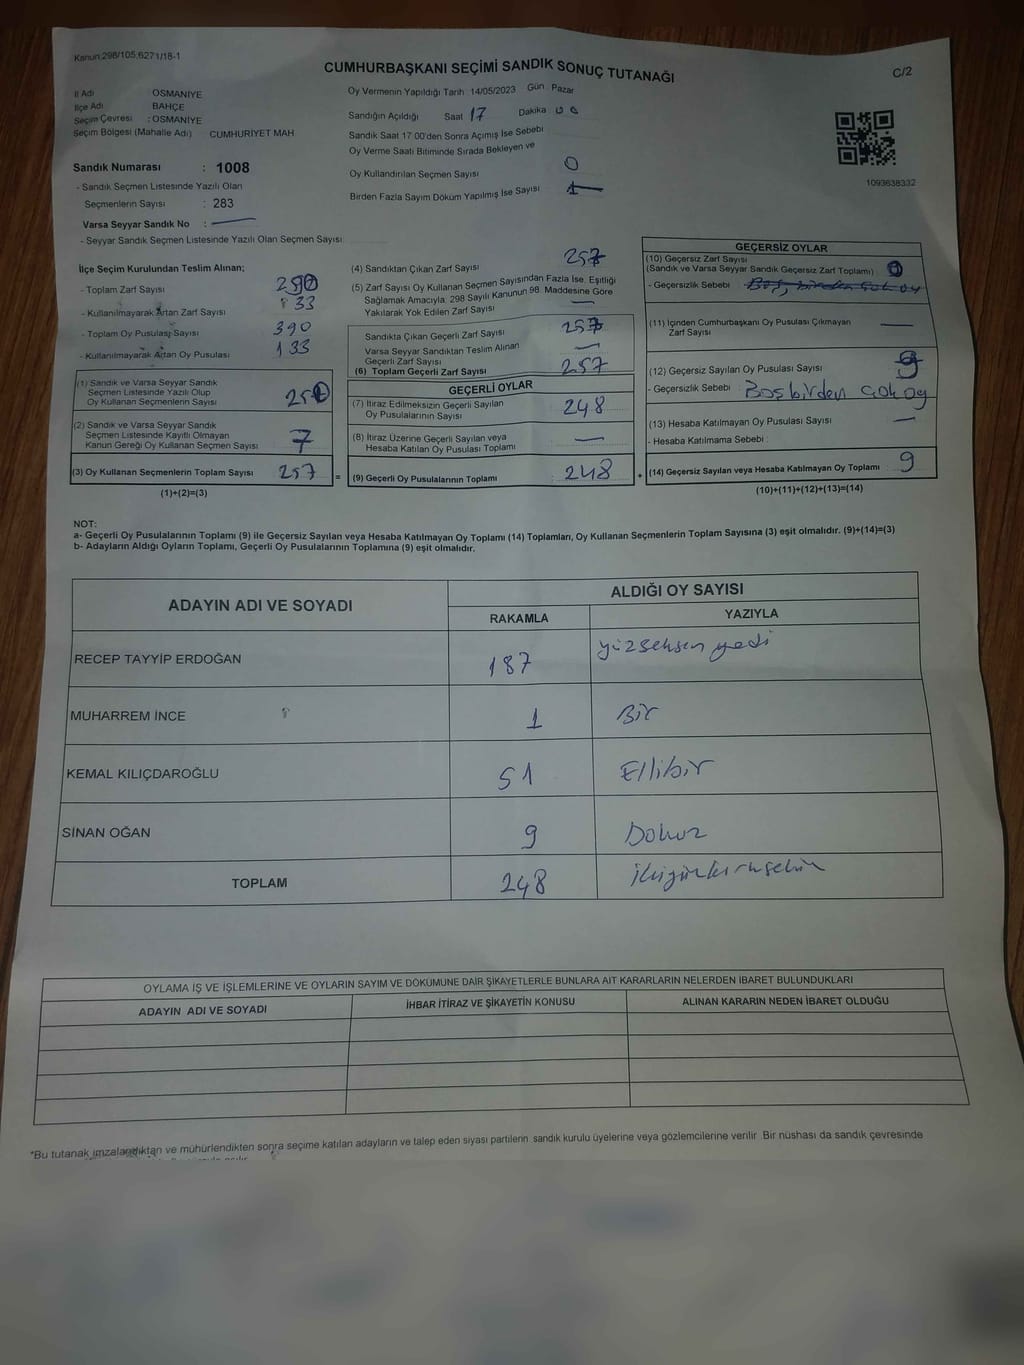 Kanun:298/105;6271/18-1
CUMHURBAŞKANI SEÇİMİ SANDIK SONUÇ TUTANAĞI
C/2
İl Adı OSMANİYE
İlçe Adı BAHÇE
Seçim Çevresi : OSMANİYE
Seçim Bölgesi (Mahalle Adı) CUMHURİYET MAH
Sandık Numarası : 1008
- Sandık Seçmen Listesinde Yazılı Olan
Seçmenlerin Sayısı : 283
Varsa Seyyar Sandık No :
- Seyyar Sandık Seçmen Listesinde Yazılı Olan Seçmen Sayısı:
Oy Vermenin Yapıldığı Tarih 14/05/2023 Gün Pazar
Sandığın Açıldığı Saat 17 Dakika 00
Sandık Saat 17:00'den Sonra Açımış İse Sebebi
Oy Verme Saati Bitiminde Sırada Bekleyen ve
Oy Kullandırılan Seçmen Sayısı 0
Birden Fazla Sayım Döküm Yapılmış İse Sayısı 1
1093638332
İlçe Seçim Kurulundan Teslim Alınan;
- Toplam Zarf Sayısı 290
- Kullanılmayarak Artan Zarf Sayısı 33
- Toplam Oy Pusulası Sayısı 390
- Kullanılmayarak Artan Oy Pusulası 133
(1) Sandık ve Varsa Seyyar Sandık
Seçmen Listesinde Yazılı Olup
Oy Kullanan Seçmenlerin Sayısı 250
(2) Sandık ve Varsa Seyyar Sandık
Seçmen Listesinde Kayıtlı Olmayan
Kanun Gereği Oy Kullanan Seçmen Sayısı 7
(3) Oy Kullanan Seçmenlerin Toplam Sayısı 257 =
(1)+(2)=(3)
(4) Sandıktan Çıkan Zarf Sayısı 257
(5) Zarf Sayısı Oy Kullanan Seçmen Sayısından Fazla İse, Eşitliği
Sağlamak Amacıyla, 298 Sayılı Kanunun 98. Maddesine Göre
Yakılarak Yok Edilen Zarf Sayısı
Sandıkta Çıkan Geçerli Zarf Sayısı 257
Varsa Seyyar Sandıktan Teslim Alınan
Geçerli Zarf Sayısı
(6) Toplam Geçerli Zarf Sayısı 257
GEÇERLİ OYLAR
(7) İtiraz Edilmeksizin Geçerli Sayılan
Oy Pusulalarının Sayısı 248
(8) İtiraz Üzerine Geçerli Sayılan veya
Hesaba Katılan Oy Pusulası Toplamı
(9) Geçerli Oy Pusulalarının Toplamı 248 +
GEÇERSİZ OYLAR
(10) Geçersiz Zarf Sayısı
(Sandık ve Varsa Seyyar Sandık Geçersiz Zarf Toplamı) : 0
- Geçersizlik Sebebi : Boş, birden çok oy
(11) İçinden Cumhurbaşkanı Oy Pusulası Çıkmayan
Zarf Sayısı
(12) Geçersiz Sayılan Oy Pusulası Sayısı 9
- Geçersizlik Sebebi : Boş birden çok oy
(13) Hesaba Katılmayan Oy Pusulası Sayısı
- Hesaba Katılmama Sebebi :
(14) Geçersiz Sayılan veya Hesaba Katılmayan Oy Toplamı 9
(10)+(11)+(12)+(13)=(14)
NOT:
a- Geçerli Oy Pusulalarının Toplamı (9) ile Geçersiz Sayılan veya Hesaba Katılmayan Oy Toplamı (14) Toplamları, Oy Kullanan Seçmenlerin Toplam Sayısına (3) eşit olmalıdır. (9)+(14)=(3)
b- Adayların Aldığı Oyların Toplamı, Geçerli Oy Pusulalarının Toplamına (9) eşit olmalıdır.
ADAYIN ADI VE SOYADI
ALDIĞI OY SAYISI
RAKAMLA YAZIYLA
RECEP TAYYİP ERDOĞAN 187 yüzseksen yedi
MUHARREM İNCE 1 Bir
KEMAL KILIÇDAROĞLU 51 Ellibir
SİNAN OĞAN 9 Dokuz
TOPLAM 248
OYLAMA İŞ VE İŞLEMLERİNE VE OYLARIN SAYIM VE DÖKÜMÜNE DAİR ŞİKAYETLERLE BUNLARA AİT KARARLARIN NELERDEN İBARET BULUNDUKLARI
ADAYIN ADI VE SOYADI İHBAR İTİRAZ VE ŞİKAYETİN KONUSU ALINAN KARARIN NEDEN İBARET OLDUĞU
*Bu tutanak imzalandıktan ve mühürlendikten sonra seçime katılan adayların ve talep eden siyasi partilerin sandık kurulu üyelerine veya gözlemcilerine verilir. Bir nüshası da sandık çevresinde